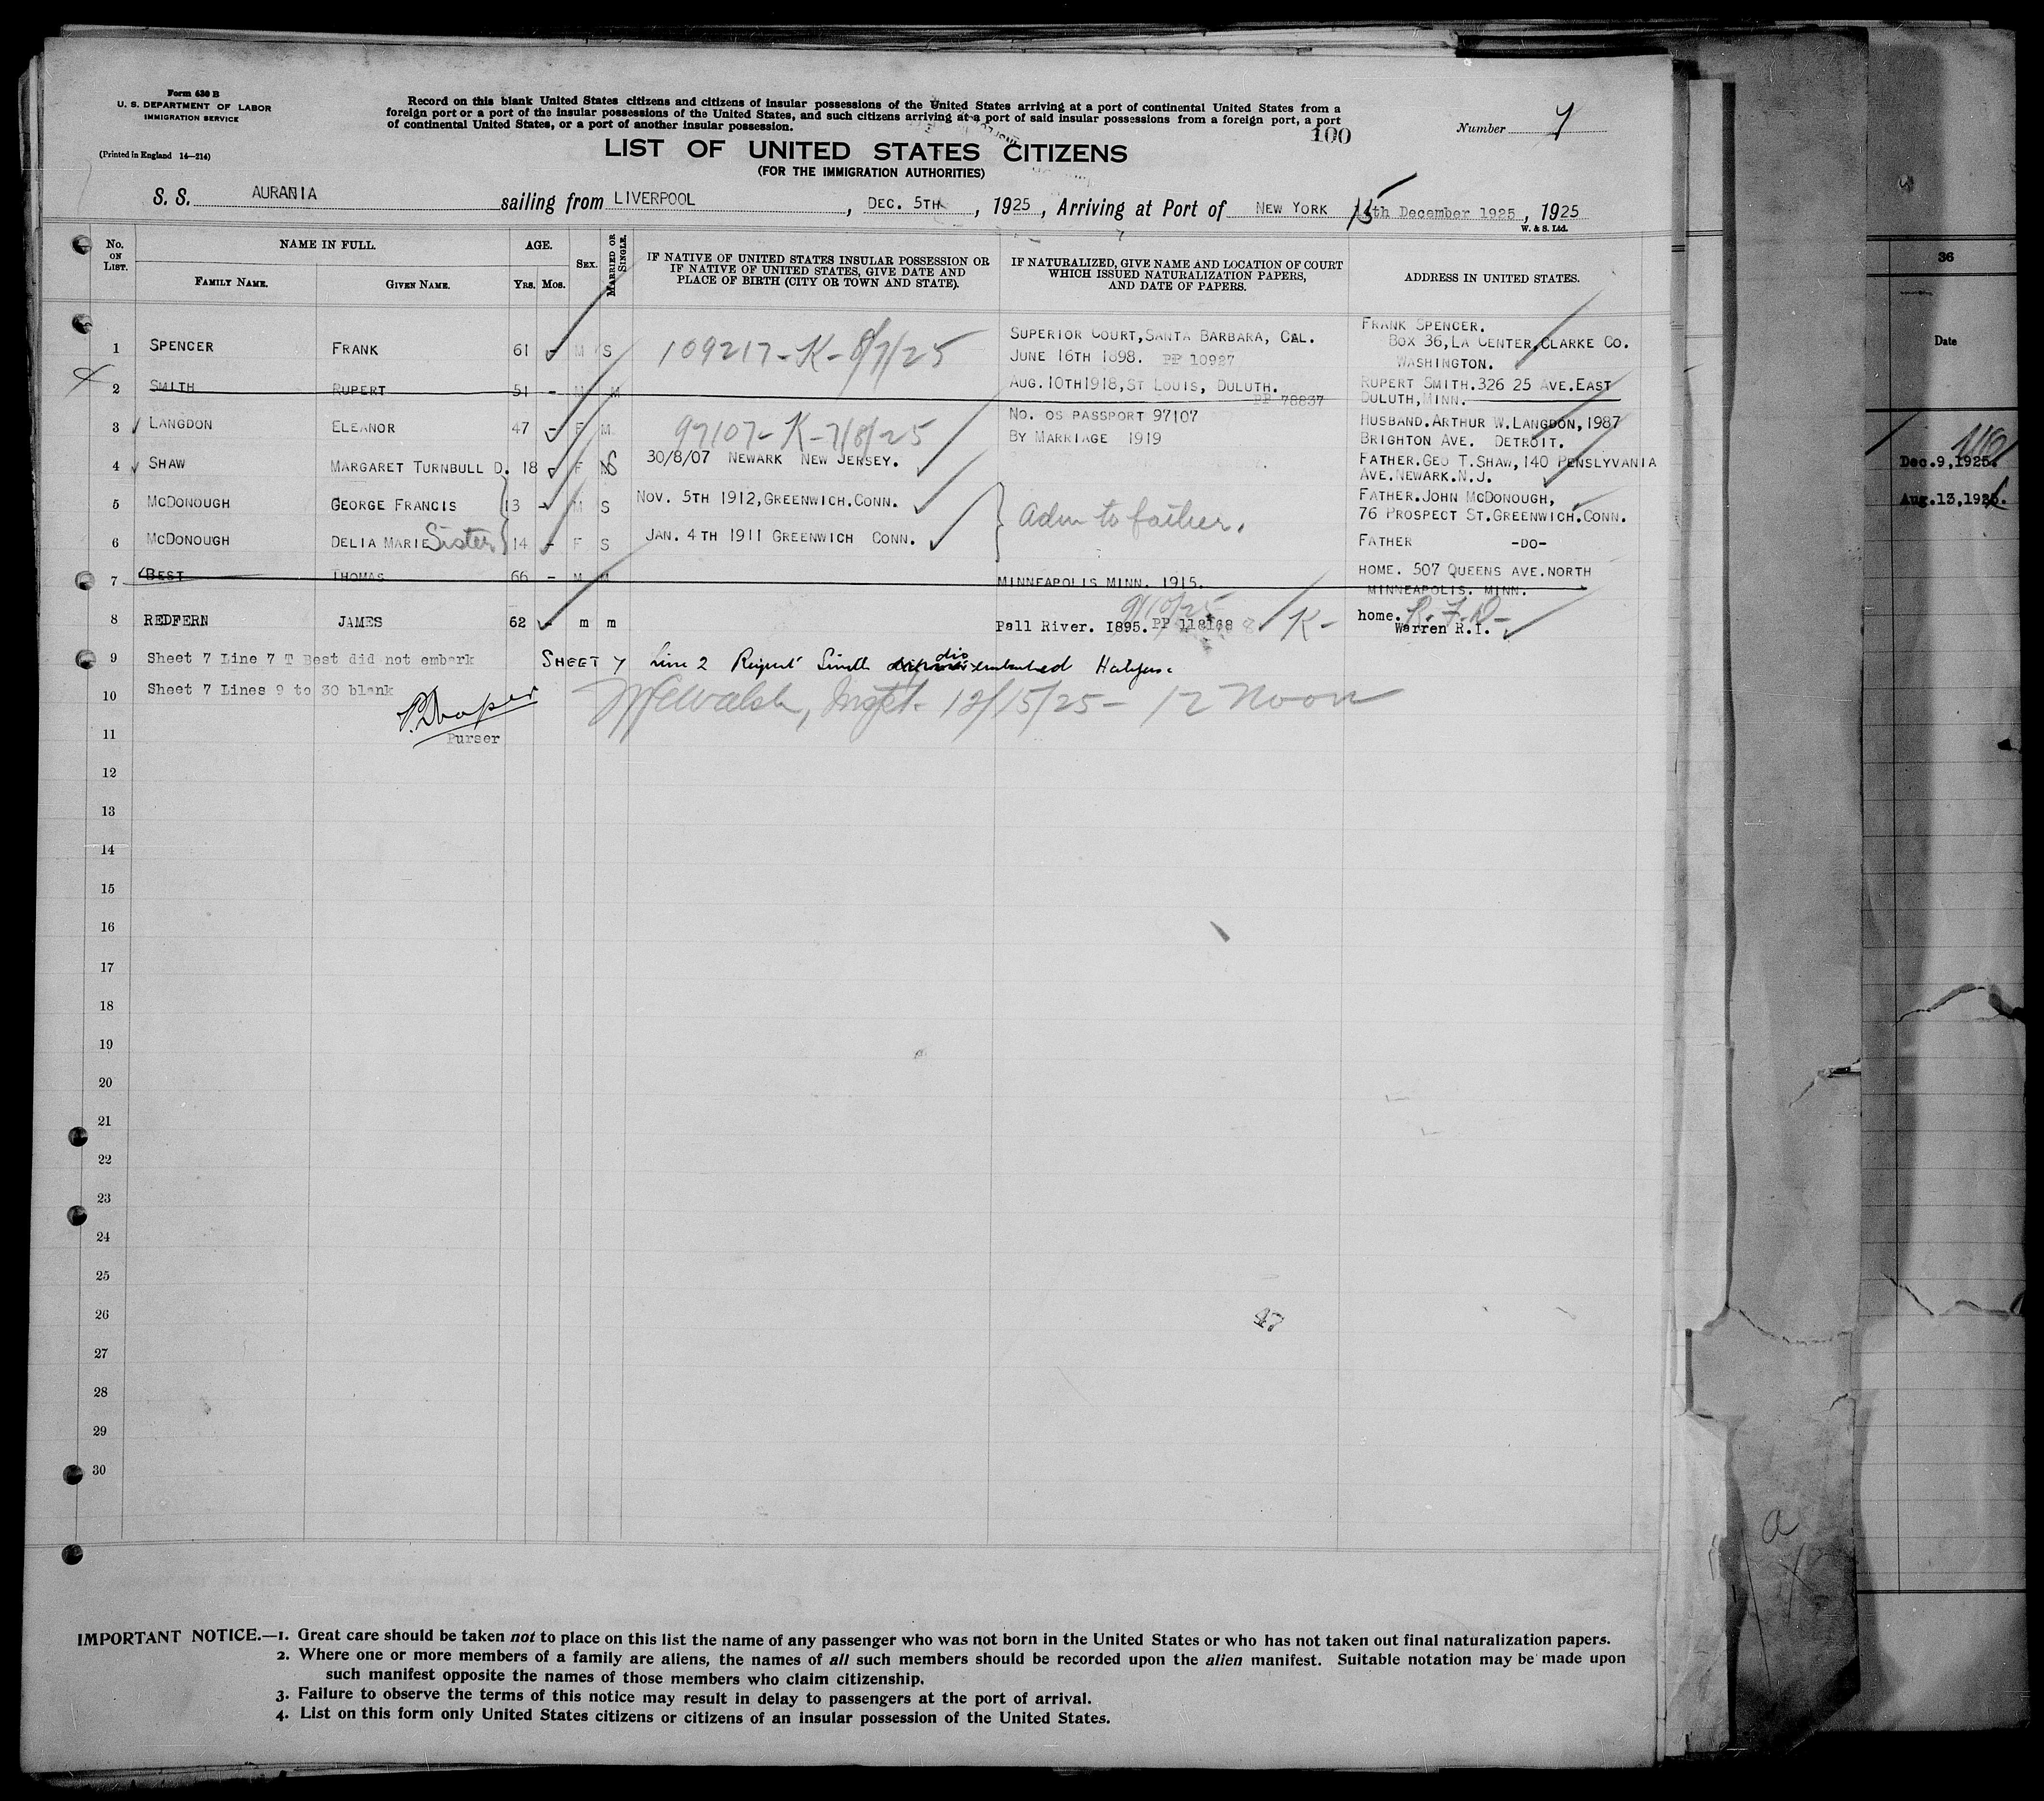 Form 630 B
U. S. DEPARTMENT OF LABOR
IMMIGRATION SERVICE
(Printed in England 14—214)
Record on this blank United States citizens and citizens of insular possessions of the United States arriving at a port of continental United States from a
foreign port or a port of the insular possessions of the United States, and such citizens arriving at a port of said insular possessions from a foreign port, a port
of continental United States, or a port of another insular possession.
100
Number 7
LIST OF UNITED STATES CITIZENS
(FOR THE IMMIGRATION AUTHORITIES)
S. S. AURANIA sailing from LIVERPOOL, DEC. 5TH, 1925, Arriving at Port of NEW YORK 15th December 1925, 1925
W. & S. Ltd.
No. ON LIST.
NAME IN FULL.
FAMILY NAME.
GIVEN NAME.
AGE.
YRS. MOS.
SEX.
MARRIED OR SINGLE.
IF NATIVE OF UNITED STATES INSULAR POSSESSION OR
IF NATIVE OF UNITED STATES, GIVE DATE AND
PLACE OF BIRTH (CITY OR TOWN AND STATE).
IF NATURALIZED, GIVE NAME AND LOCATION OF COURT
WHICH ISSUED NATURALIZATION PAPERS,
AND DATE OF PAPERS.
ADDRESS IN UNITED STATES.
1 SPENCER FRANK 61 - M S 109217-K-8/7/25 SUPERIOR COURT, SANTA BARBARA, CAL.
JUNE 16TH 1898. PP 10927
FRANK SPENCER.
BOX 36, LA CENTER, CLARKE CO.
WASHINGTON.
2 SMITH RUPERT 51 - M M AUG. 10TH 1918, ST LOUIS, DULUTH.
PP 78837
RUPERT SMITH. 326 25 AVE. EAST
DULUTH, MINN.
3 LANGDON ELEANOR 47 - F M 97107-K-7/8/25 NO. OS PASSPORT 97107
BY MARRIAGE 1919
HUSBAND. ARTHUR W. LANGDON, 1987
BRIGHTON AVE. DETROIT.
4 SHAW MARGARET TURNBULL D. 18 - F S 30/8/07 NEWARK NEW JERSEY.
FATHER. GEO T. SHAW, 140 PENSLYVANIA
AVE. NEWARK. N. J.
5 MCDONOUGH GEORGE FRANCIS 13 - M S NOV. 5TH 1912, GREENWICH. CONN.
Adm to father.
FATHER. JOHN MCDONOUGH,
76 PROSPECT ST. GREENWICH. CONN.
6 MCDONOUGH DELIA MARIE Sister 14 - F S JAN. 4TH 1911 GREENWICH CONN.
FATHER -DO-
7 BEST THOMAS 66 - M M MINNEAPOLIS MINN. 1915.
HOME. 507 QUEENS AVE. NORTH
MINNEAPOLIS. MINN.
8 REDFERN JAMES 62 - m m 9/10/25
Pall River. 1895. PP 118168 K-
home. R.F.D-
Warren R.I.
9 Sheet 7 Line 7 T Best did not embark SHEET 7 Line 2 Rupert Smith disembarked Halifax.
10 Sheet 7 Lines 9 to 30 blank
Walsh, Inspt. 12/15/25- 12 Noon
P. Draper
11 Purser
12
13
14
15
16
17
18
19
20
21
22
23
24
25
26
47
27
28
29
30
IMPORTANT NOTICE.—1. Great care should be taken not to place on this list the name of any passenger who was not born in the United States or who has not taken out final naturalization papers.
2. Where one or more members of a family are aliens, the names of all such members should be recorded upon the alien manifest. Suitable notation may be made upon
such manifest opposite the names of those members who claim citizenship.
3. Failure to observe the terms of this notice may result in delay to passengers at the port of arrival.
4. List on this form only United States citizens or citizens of an insular possession of the United States.
36
Date
Dec. 9, 1925.
Aug. 13, 192